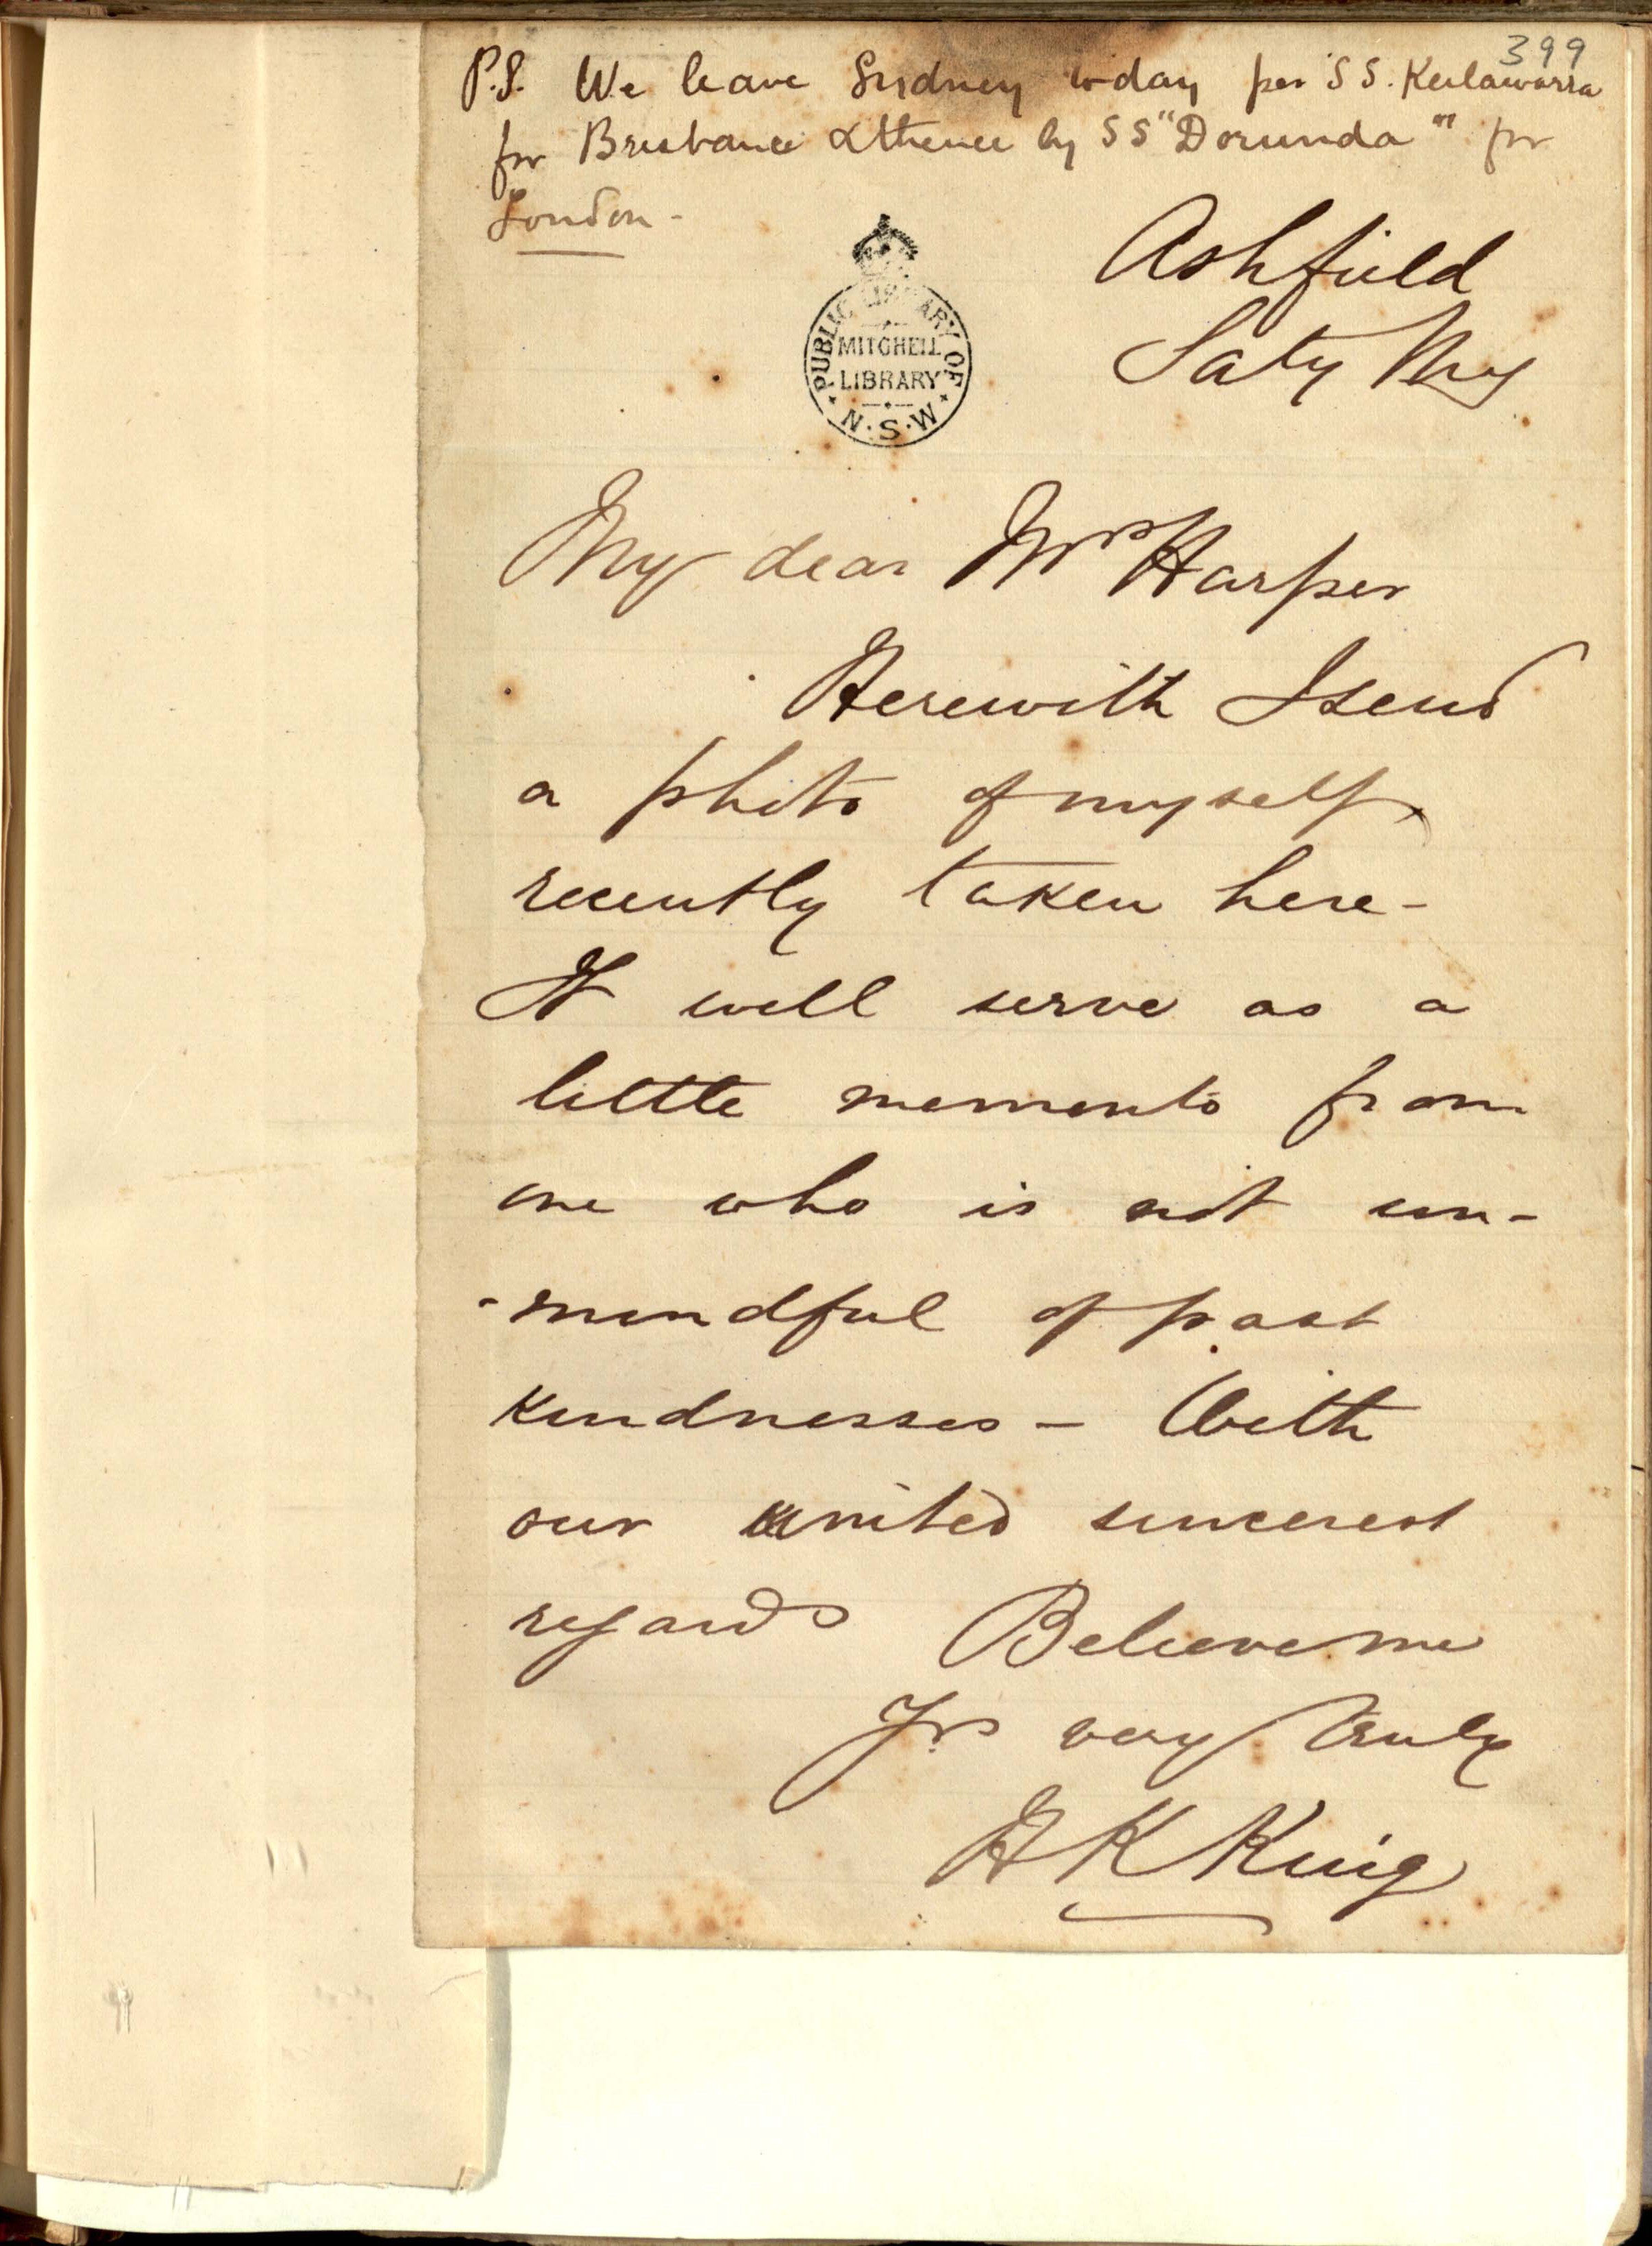 399
P.S. We leave Sydney to-day per S S. Keilawarra
for Brisbane & thence by S S "Dorunda" for
London -
PUBLIC LIBRARY OF
MITCHELL
LIBRARY
N.S.W
Ashfield
Saty Mg
My dear Mrs Harper
Herewith I send
a photo of myself
recently taken here -
It will serve as a
little memento from
one who is not un-
-mindful of past
kindnesses - With
our united sincerest
regards Believe me
Yrs very truly
H K King